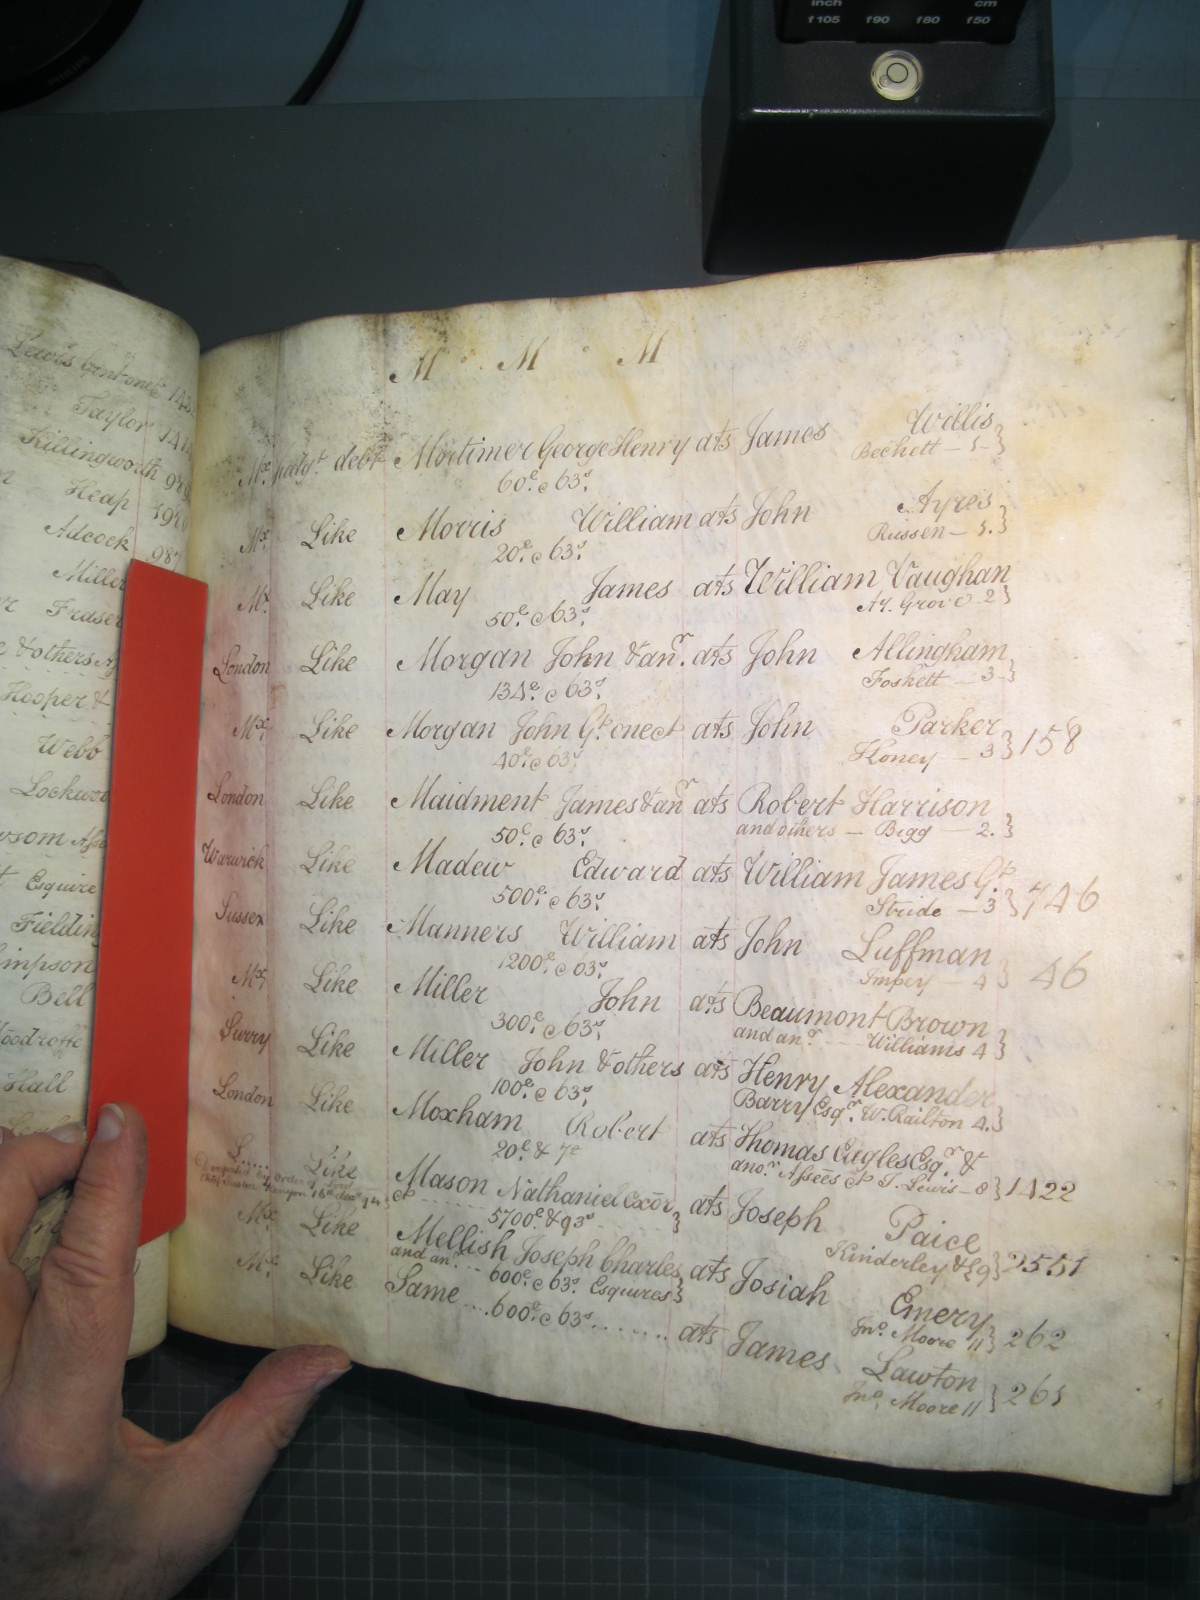 inch cm
f105 f90 f80 f50
PHILIPS
Lewis Gent one &c
Taylor
Killingworth
Heap
Adcock 987
Miller
Fraser
& others
Hooper &
Webb
Esquire
Bell
Hall
M M M
Mx. Judgt. debt Mortimer George Henry ats James Willis
60£ & 63s. Beckett – 1 –
Mx. Like Morris William ats John Ayres
20£ & 63s. Russen – 1.
Mx. Like May James ats William Vaughan
50£ & 63s. Grove 2
London Like Morgan John & anr. ats John Allingham
134£ & 63s. Foskett – 3 –
Mx. Like Morgan John Gt. one &c ats John Parker
40£ & 63s. Honey – 3 158
London Like Maidment James & anr ats Robert Harrison
50£ & 63s. and others – Bigg – 2.
Warwick Like Madew Edward ats William James Gt.
500£ & 63s. Stride – 3 746
Sussex Like Manners William ats John Luffman
1200£ & 63s. Impey – 4 46
Mx. Like Miller John ats Beaumont Brown
300£ & 63s. and anr. Williams 4
Surry Like Miller John & others ats Henry Alexander
100£ & 63s. Barry Esqr. W. Railton 4.
London Like Moxham Robert ats Thomas Eagles Esqr. &
20£ & 7£ anor. Assees &c T. Lewis – 8 1422
L Like Mason Nathaniel Exor. ats Joseph Paice
&c 5700£ & 93s Kinderley & L 9 2551
Mx. Like Mellish Joseph Charles ats Josiah Emery
and anr. 600£ & 63s. Esquires Jno. Moore 11 262
Mx. Like Same 600£ & 63s ats James Lawton
Jno. Moore 11 261